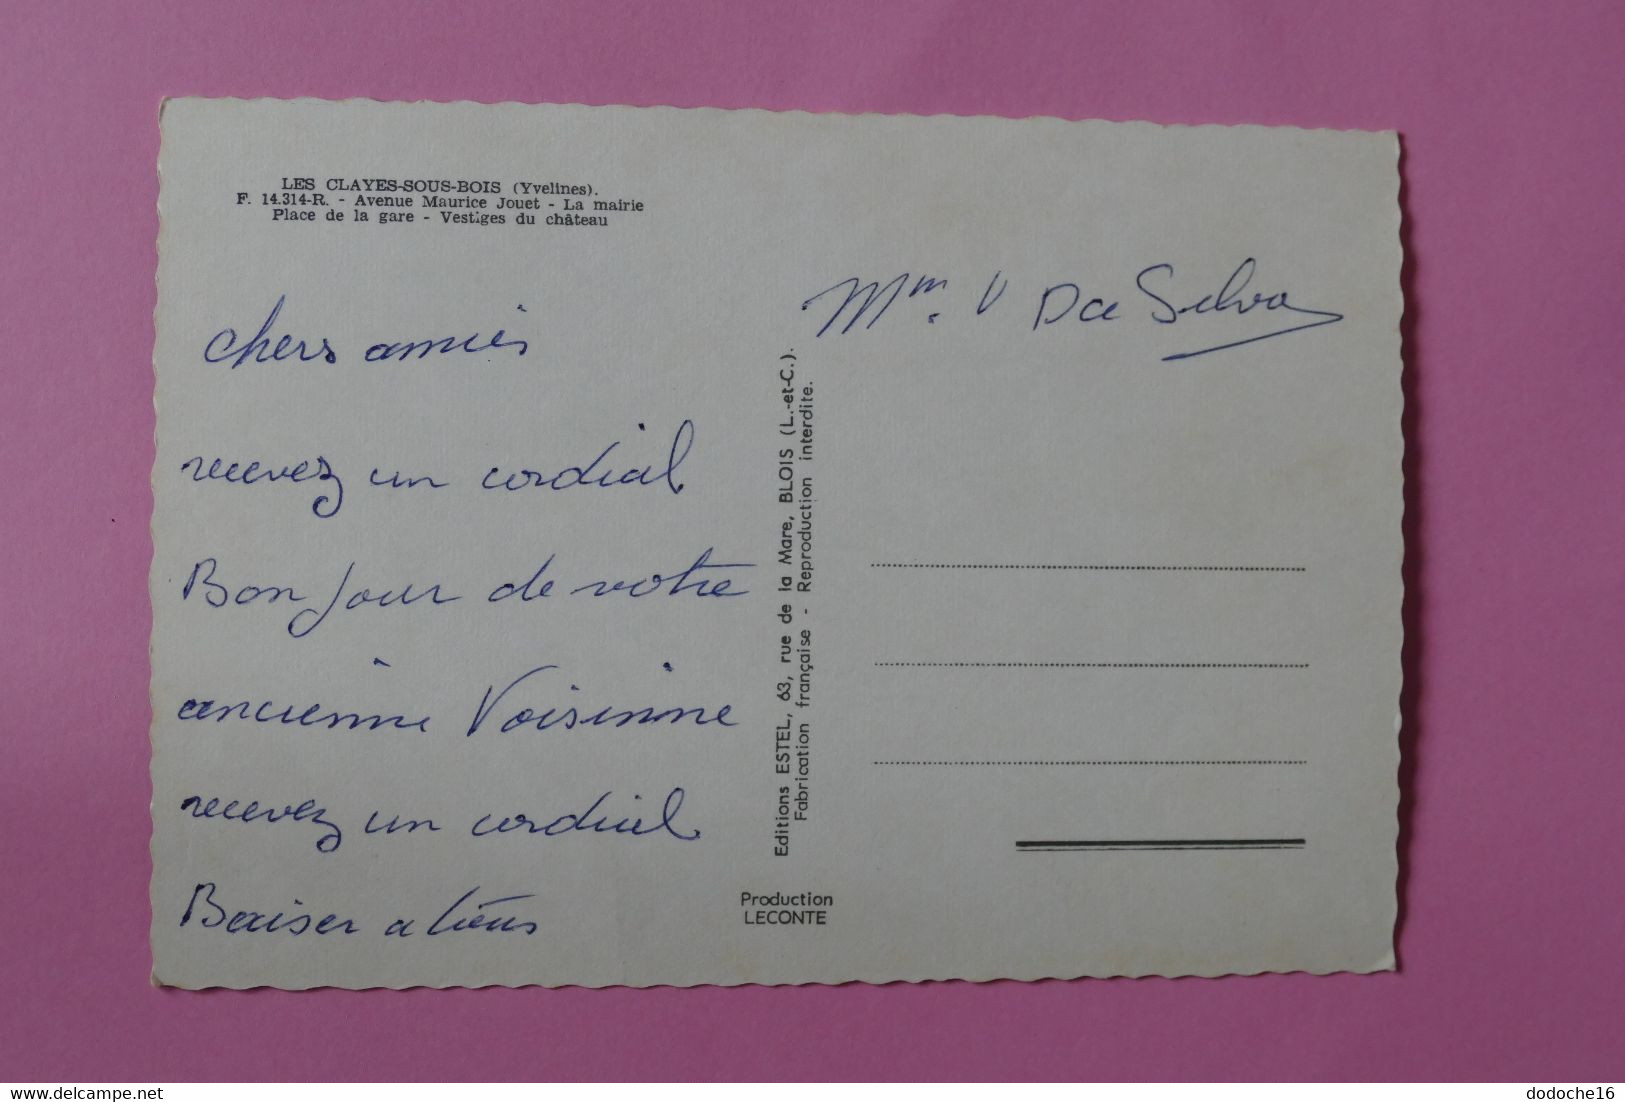 LES CLAYES-SOUS-BOIS (Yvelines).
F. 14.314-R. - Avenue Maurice Jouet - La mairie
Place de la gare - Vestiges du château
chers amies
recevez un cordial
Bon Jour de votre
ancienne Voisinne
recevez un cordial
Baiser a tous
Editions ESTEL, 63, rue de la Mare, BLOIS (L.-et-C.).
Fabrication française - Reproduction interdite.
Production
LECONTE
Mm. V Da Silva
delcampe.net
dodoche16